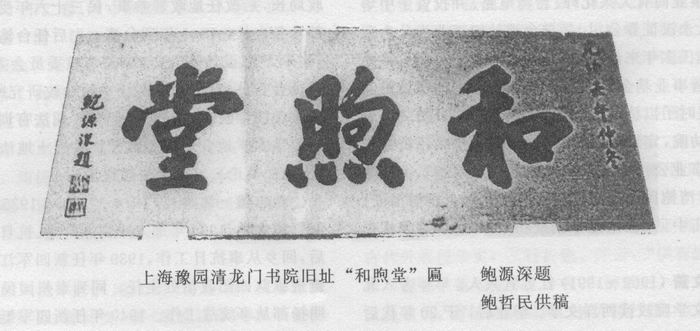 光緒壬午仲冬
和煦堂
鮑源深題
上海豫园清龙门书院旧址“和煦堂”匾 鲍源深题
鲍哲民供稿